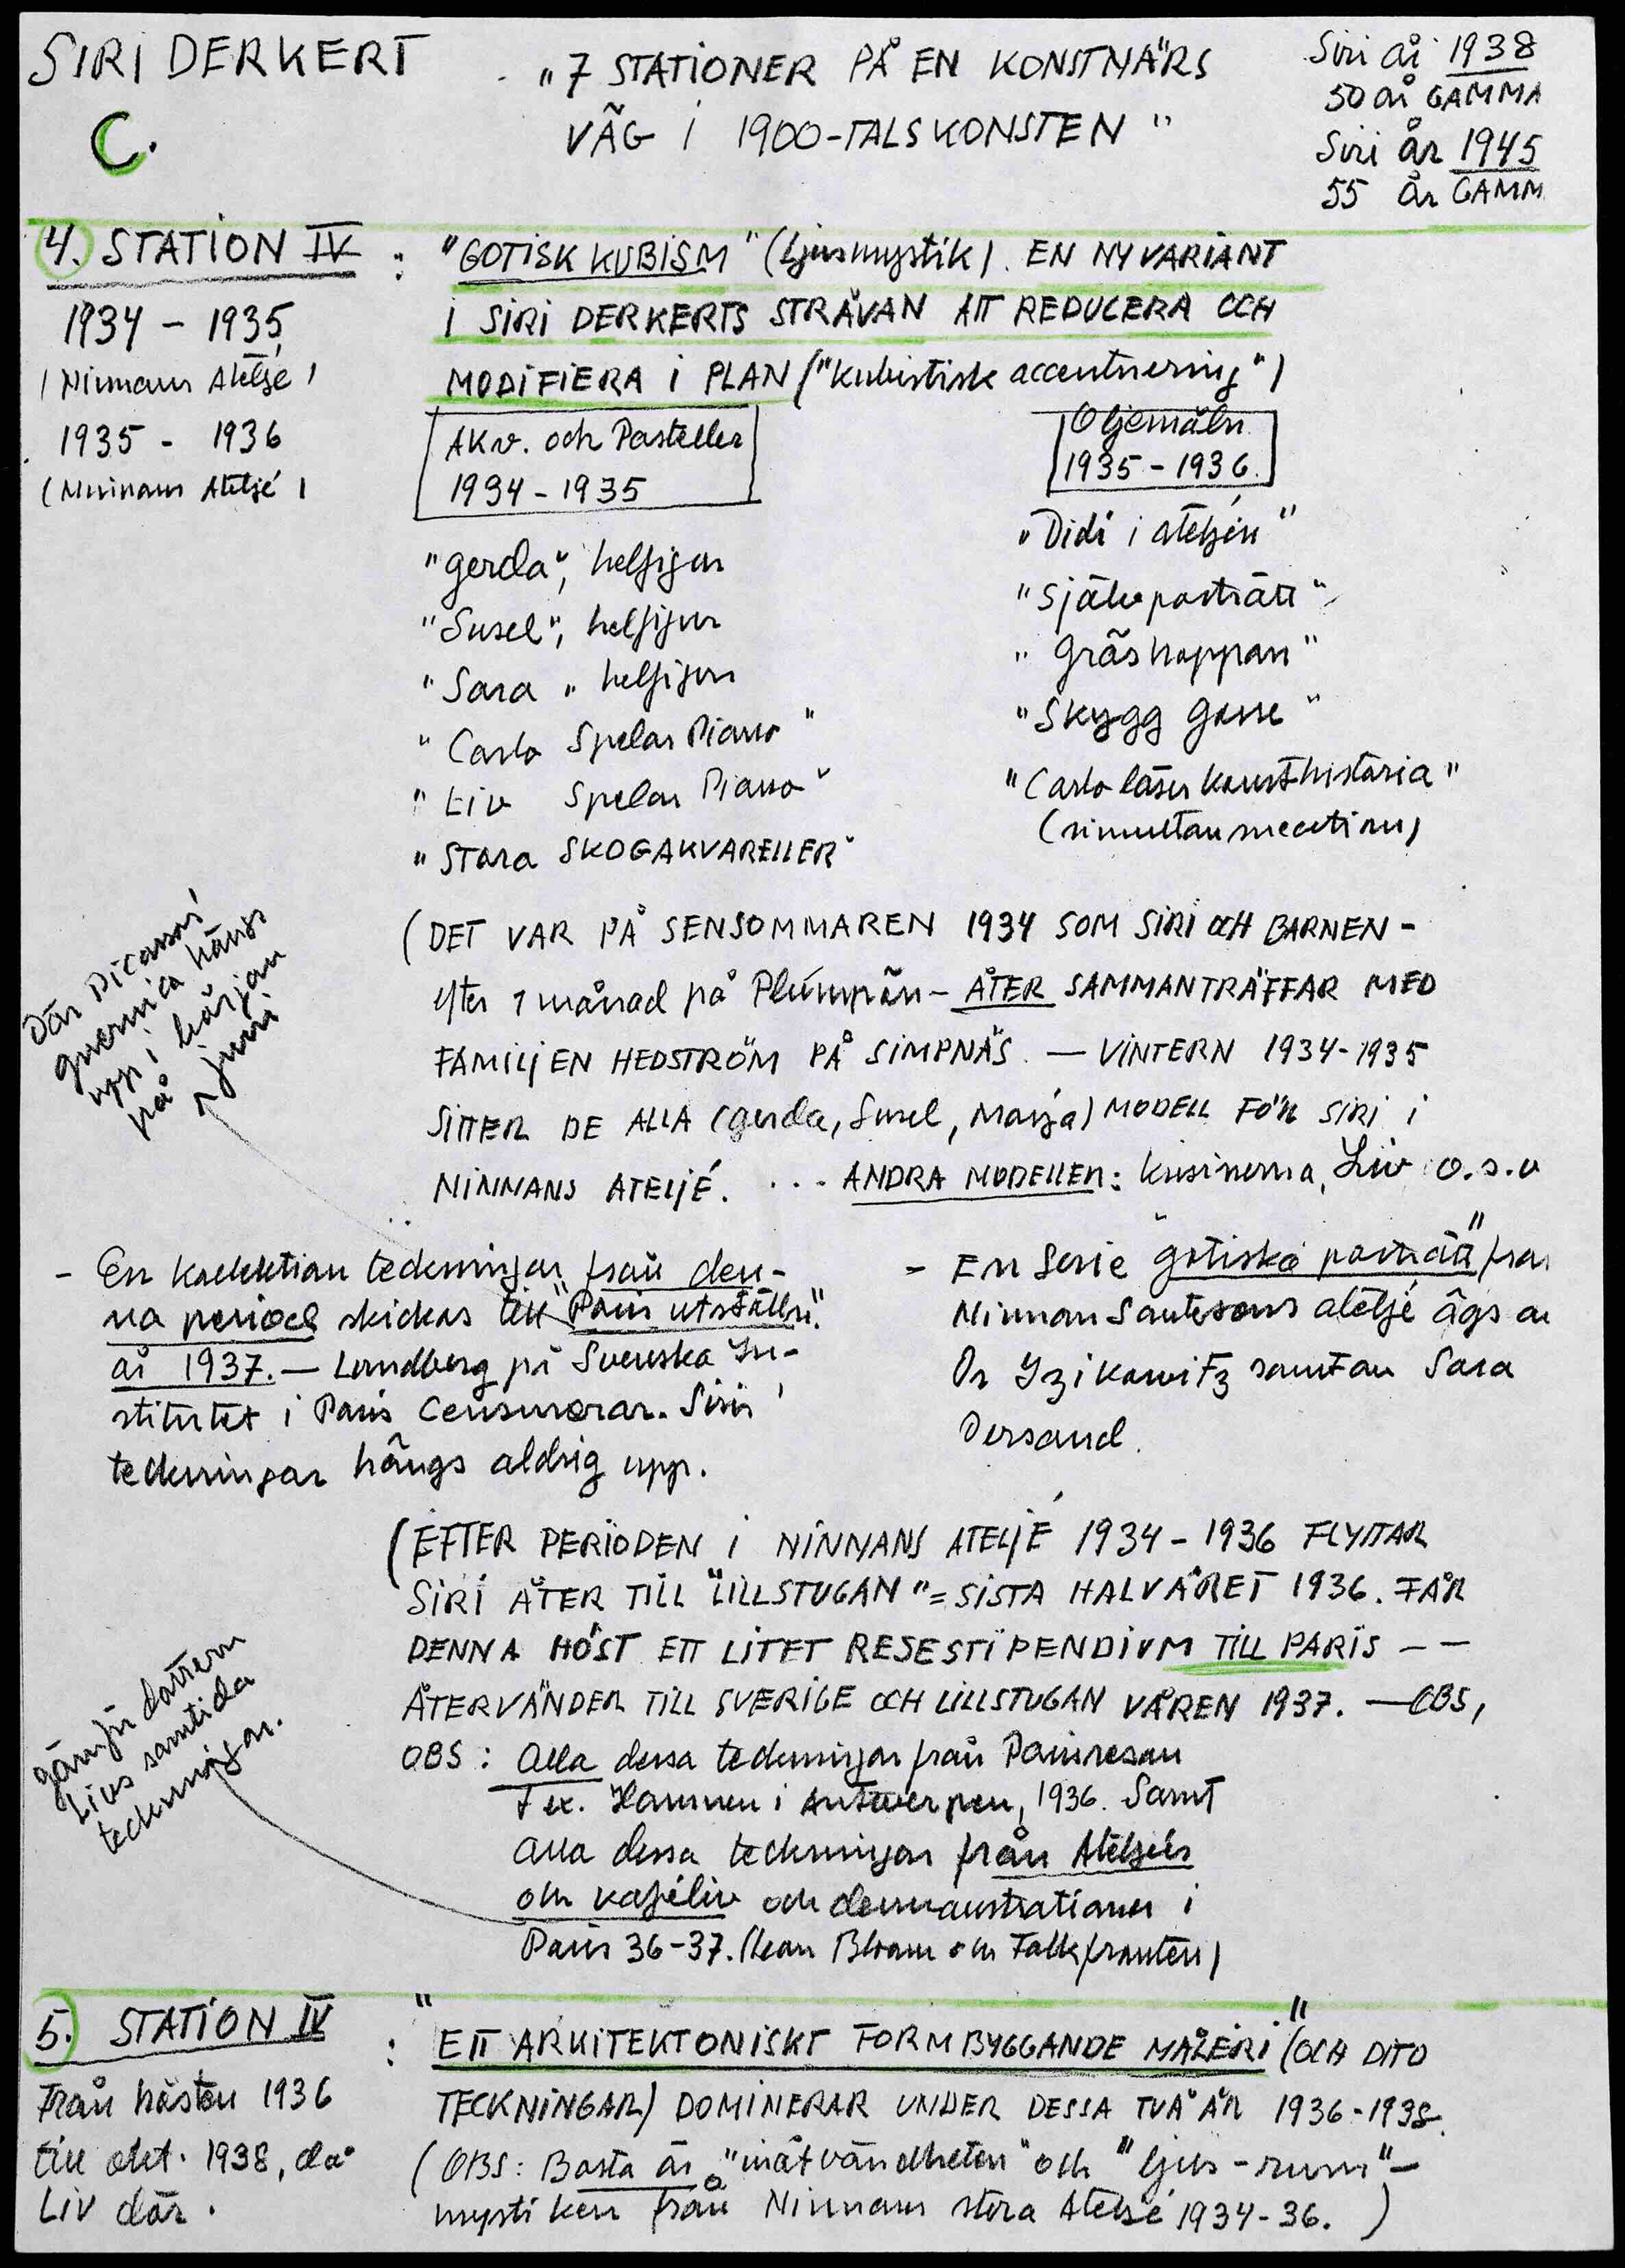 SIRI DERKERT
C.
"7 STATIONER PÅ EN KONSTNÄRS
VÄG I 1900-TALSKONSTEN"
Siri år 1938
50 år GAMMA
Siri år 1945
55 år GAMM
4. STATION IV :
1934 - 1935
(Ninnans Ateljé)
1935 - 1936
(Ninnans Ateljé)
"GOTISK KUBISM" (ljusmystik). EN NY VARIANT
I SIRI DERKERTS STRÄVAN ATT REDUCERA OCH
MODIFIERA I PLAN ("kubistisk accentuering")
AKV. och Pasteller
1934-1935
"Gerda", helfigur
"Susel", helfigur
"Sara" helfigur
"Carlo Spelar Piano"
"Liv Spelar Piano"
"STORA SKOGAKVARELLER"
Oljemåln.
1935-1936.
"Didi i ateljén"
"Självporträtt"
"Gräshoppan"
"Skygg Gosse"
"Carlo läser konsthistoria"
(simultansuccetion)
(DET VAR PÅ SENSOMMAREN 1934 SOM SIRI OCH BARNEN -
efter 1 månad på - ÅTER SAMMANTRÄFFAR MED
FAMILJEN HEDSTRÖM PÅ SIMPNÄS. — VINTERN 1934-1935
SITTER DE ALLA (Gerda, Susel, Marja) MODELL FÖR SIRI I
NINNANS ATELJÉ. ... ANDRA MODELLER: kusinerna, Liv o.s.v
Där Picassos
guernica hängs
upp i början
på juni
- En kollektion teckningar från den-
na period skickas till "Paris utställn."
år 1937. — Lundberg på Svenska In-
stitutet i Paris Censurerar. Siris
teckningar hängs aldrig upp.
- En Serie gotiska porträtt" från
Ninnan Santessons ateljé ägs av
Dr Izikowitz samt av Sara
(EFTER PERIODEN I NINNANS ATELJÉ 1934-1936 FLYTTAR
SIRI ÅTER TILL "LILLSTUGAN" = SISTA HALVÅRET 1936. FÅR
DENNA HÖST ETT LITET RESESTIPENDIUM TILL PARIS — —
ÅTERVÄNDER TILL SVERIGE OCH LILLSTUGAN VÅREN 1937. — OBS,
OBS: Alla dessa teckningar från Parisresan
t ex. Hamnen i Antwerpen, 1936. Samt
Alla dessa teckningar från Ateljéer
och kaféliv och demonstrationer i
Paris 36-37. (Lean Bloum och Folkfronten)
jämför dottern
Livs samtida
teckningar.
5. STATION IV :
Från hösten 1936
till okt. 1938, då
Liv dör.
"ETT ARKITEKTONISKT FORMBYGGANDE MÅLERI" (OCH DITO
TECKNINGAR) DOMINERAR UNDER DESSA TVÅ ÅR 1936-1938.
(OBS: Borta är "inåtvändheten" och "ljus-rum"-
mystiken från Ninnans stora Ateljé 1934-36.)